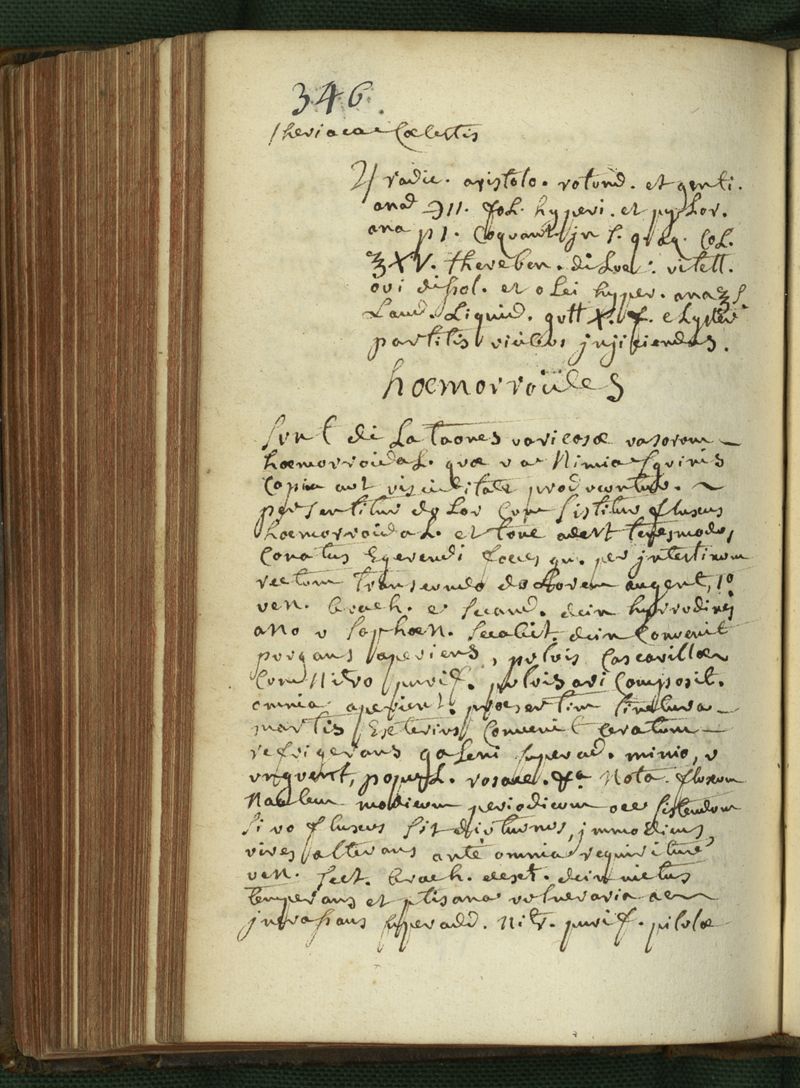 346.
Theriaca Cœlestis
♃ radic. aristolo. rotund. et genti.
ana ℈ II. fol. hyperi. et pyrlor.
ana p 1. coquant. in s. q. aq. Col.
℥ XV. thereben. dilver. vitell.
ovi dissol. et olei hyper. ana ℥ s.
Laud. Liquid. gutt X. f. Clyster
partitis vicibus injiciendus.
hœmorroïdes
sunt dilataones varicosæ vasorum
hœmorroidal. quæ va nimia sguinis
Copia aut visciditate producuntur.
persentitur dolor cum sistitur fluxus
hœmorroidal. et tunc adest tenesmodes,
Conatus Egerendi fœces qu. per intestinum
rectum transeundo dolorem augent, 1º
ven. brach. e secand. dein hyrudines
ano v saphœn. secabit. dein Convenit
purgans aperiens, pulvis Cascarillæ
Cum Nitro purif. pulvis ari Composit.
omnia aperient. prœsertim tinctura
martis Exterius Convenit Ceratum
refrigerans galeni superad. minio, v
unguent, popul. rosace. &a Nota fluxum
Nalem modicum periodicum oee sistendum
si vo fluxus sit diuturnus, immodicus,
vires alterans ante omnia requiritur
ven. sect. brach. dext. dein victus
temperans et ptisana vulneraria ac
incrassans superadd. Nitr. purif. pilulæ